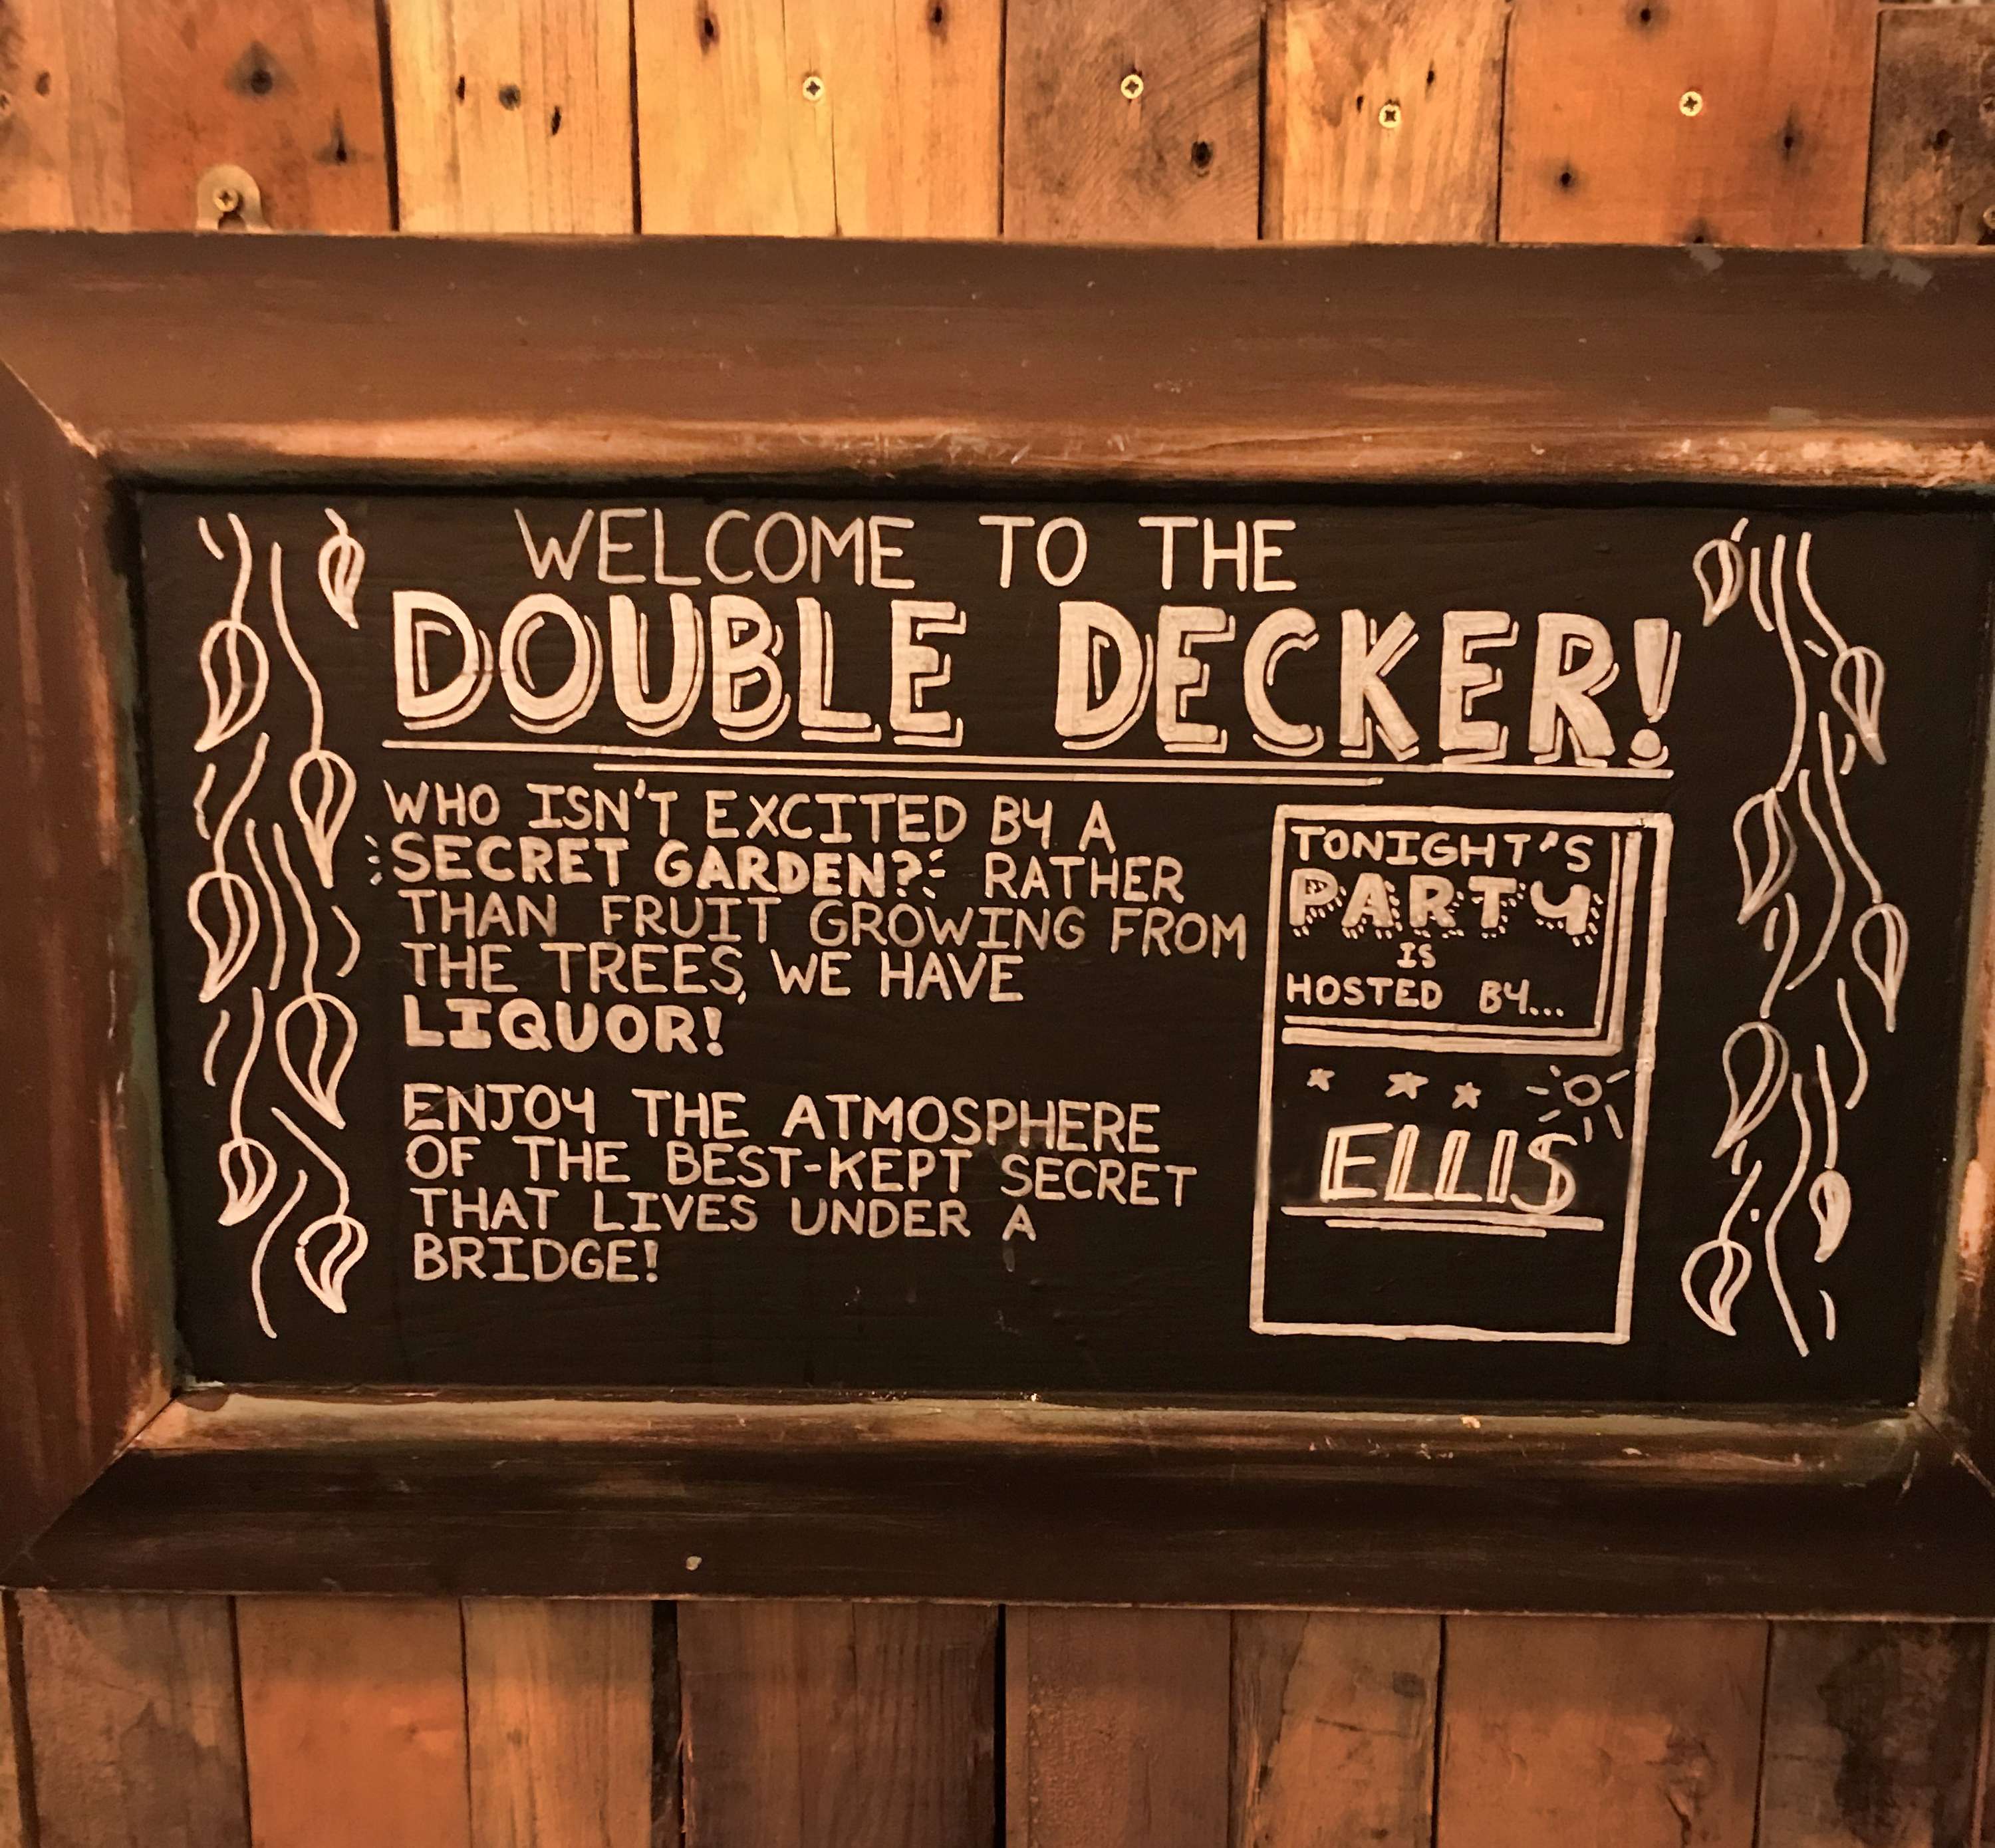 WELCOME TO THE
DOUBLE DECKER!
WHO ISN'T EXCITED BY A
SECRET GARDEN? RATHER
THAN FRUIT GROWING FROM
THE TREES, WE HAVE
LIQUOR!
ENJOY THE ATMOSPHERE
OF THE BEST-KEPT SECRET
THAT LIVES UNDER A
BRIDGE!
TONIGHT'S
PARTY
IS
HOSTED BY...
ELLIS